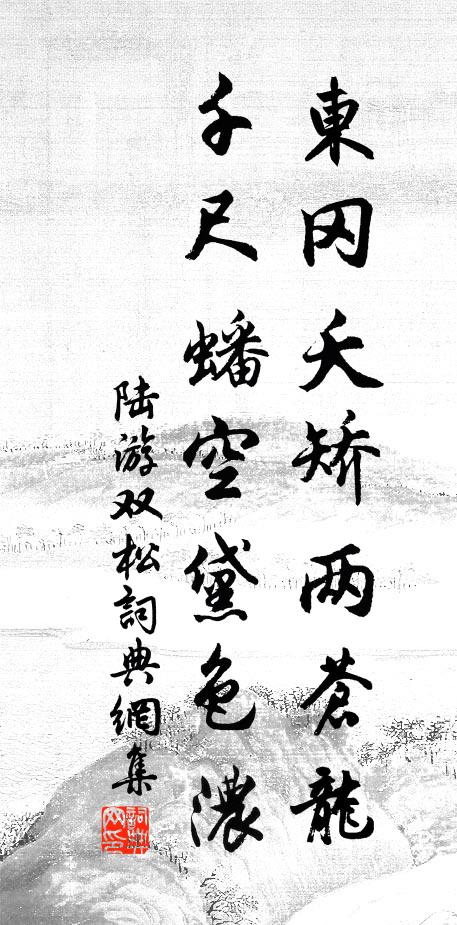 東冈夭矫两蒼龍
千尺蟠空黛色濃
陆游双松詞典網集